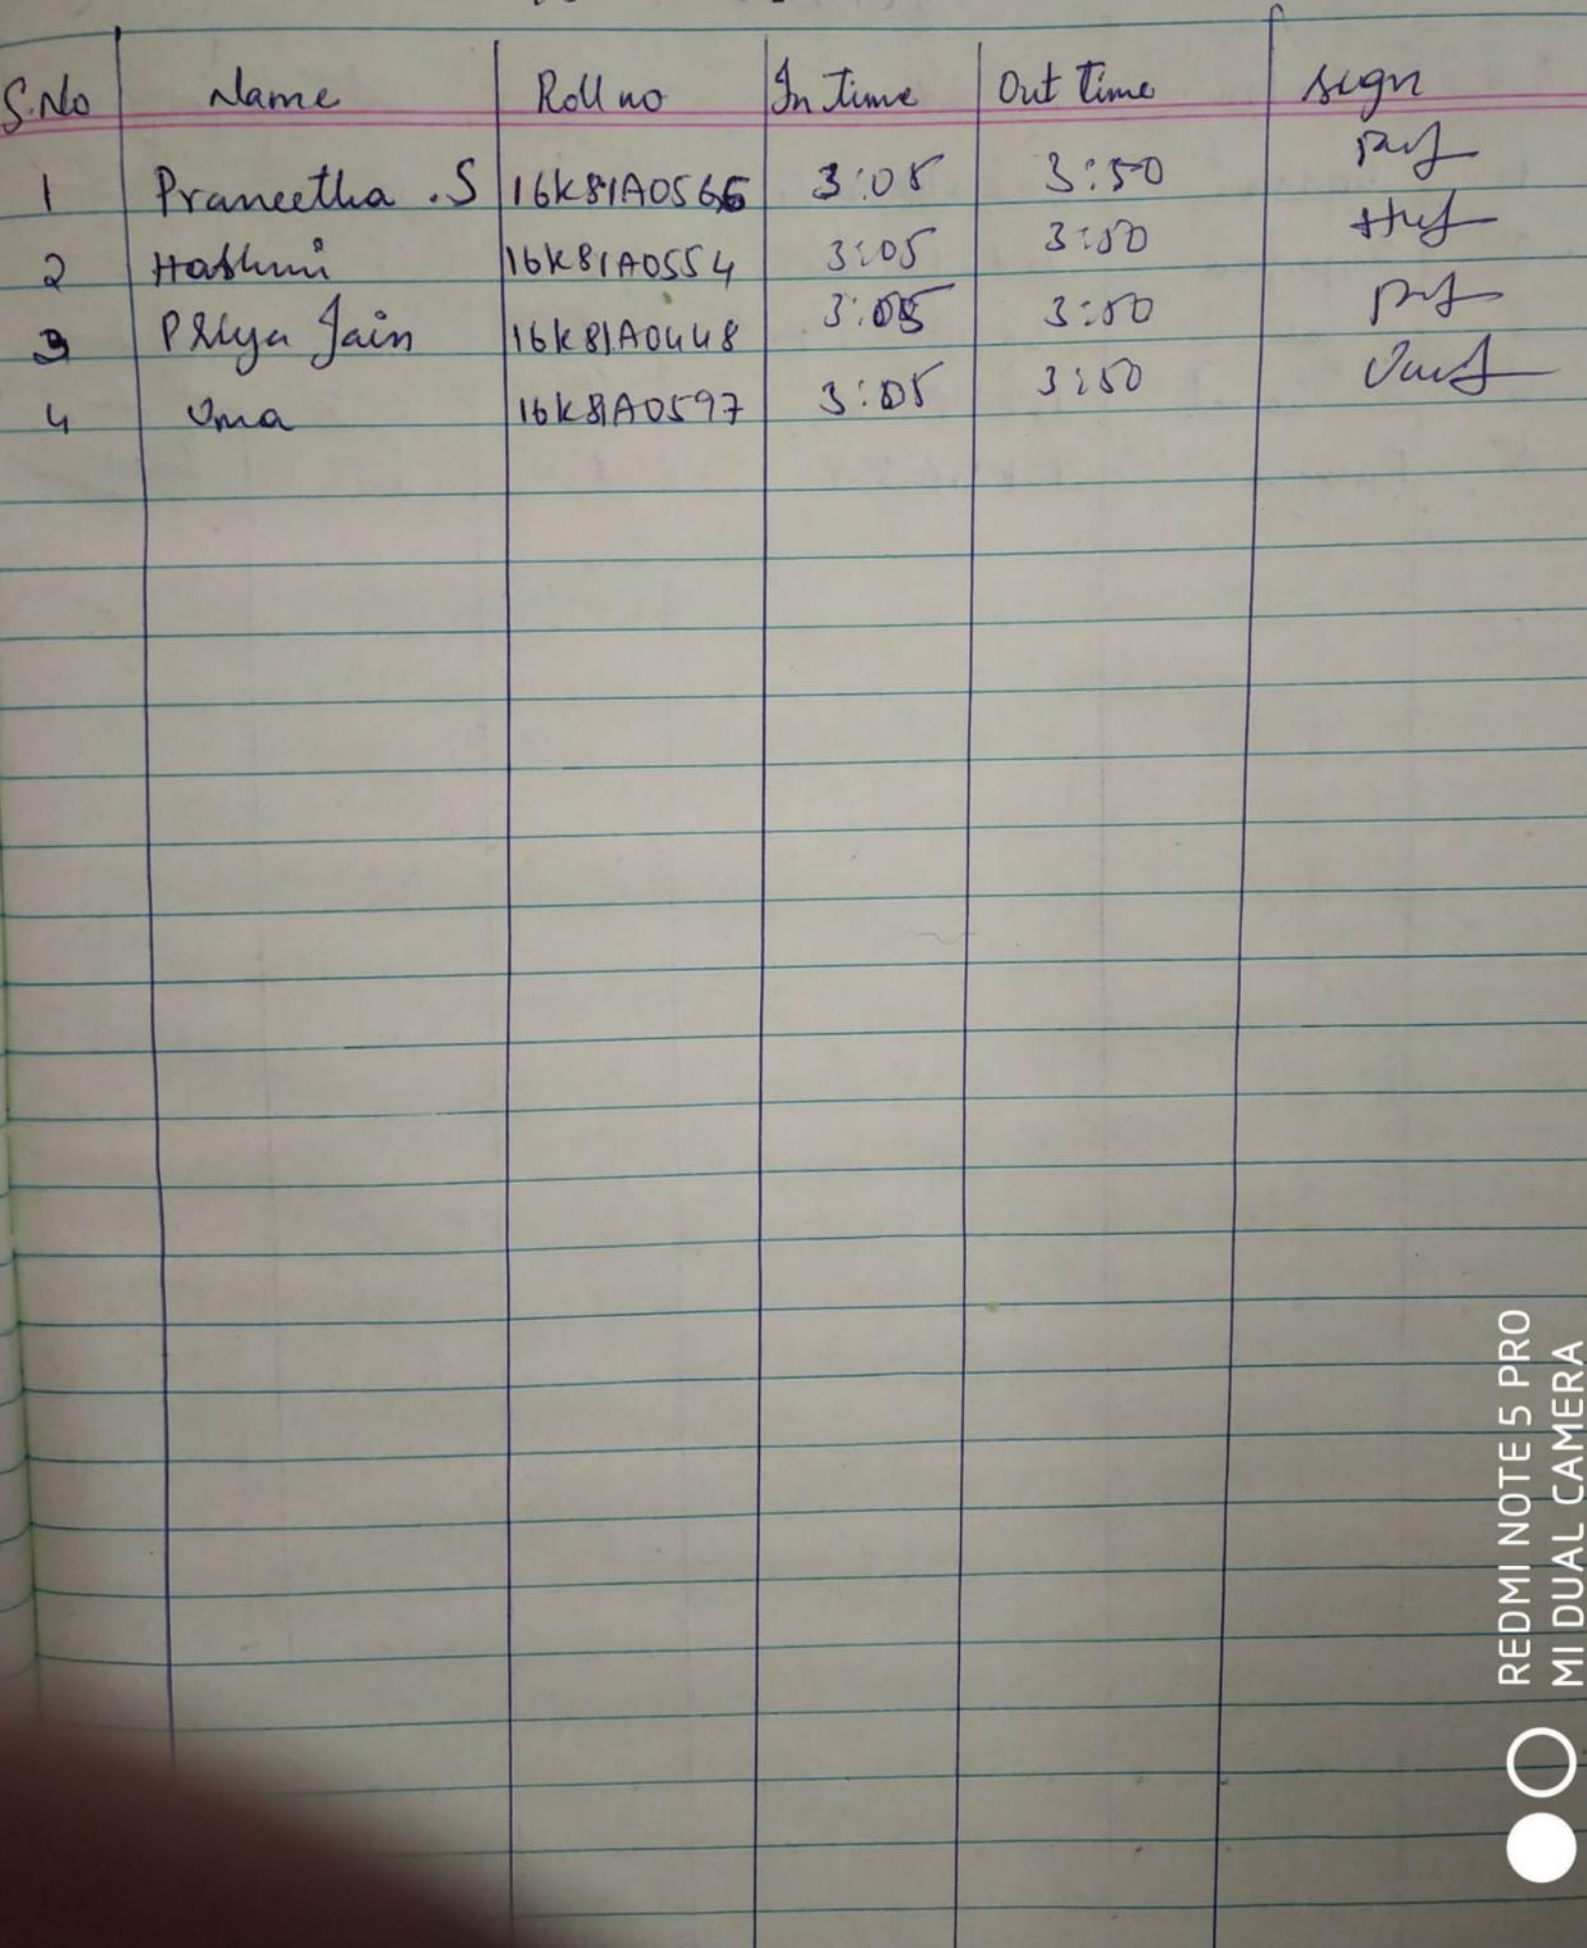 S.No Name Roll no In Time Out time sign
1 Praneetha .S 16K81A0566 3:05 3:50
2 Hashmi 16K81A0554 3:05 3:50
3 Priya Jain 16K81A0448 3:05 3:50
4 Uma 16K81A0597 3:05 3:50
REDMI NOTE 5 PRO
MI DUAL CAMERA